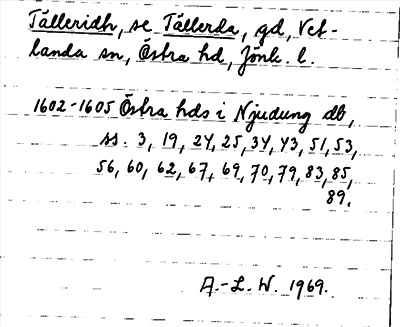 Tälleridh, se Tällerda, gd, Vet-
landa sn, Östra hd, Jönk. l.
1602-1605 Östra hds i Njudung db,
ss. 3, 19, 24, 25, 34, 43, 51, 53,
56, 60, 62, 67, 69, 70, 79, 83, 85,
89.
A.-L. W. 1969.